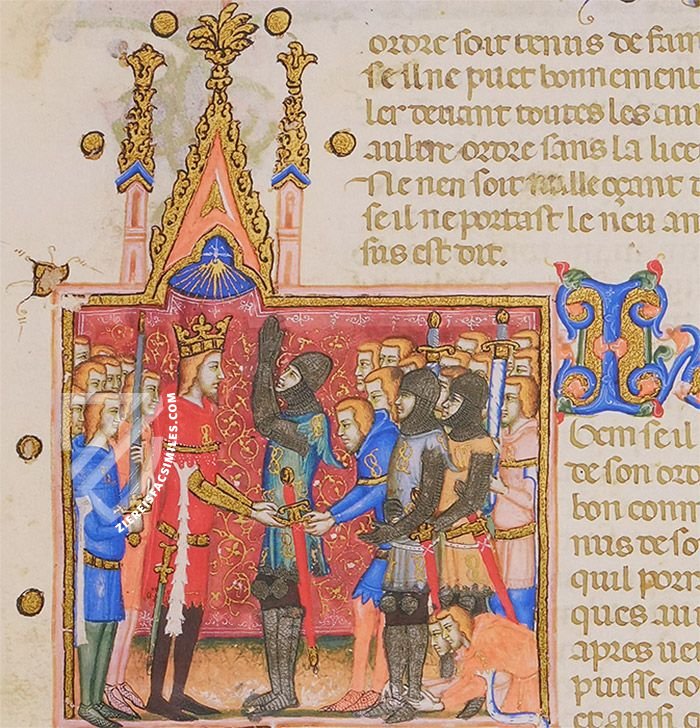 ordre soit tenus de fam
se il ne puet bonnement
ler devant toutes les au
aultre ordre sans la lice
Ne nen soit nulle
se il ne portast le neu au
sus est dit.
I
de son ord
bon conn
nus de so
quil port
ques au
apres ue
puisse co
er ainsi
ZIEREISFACSIMILES.COM